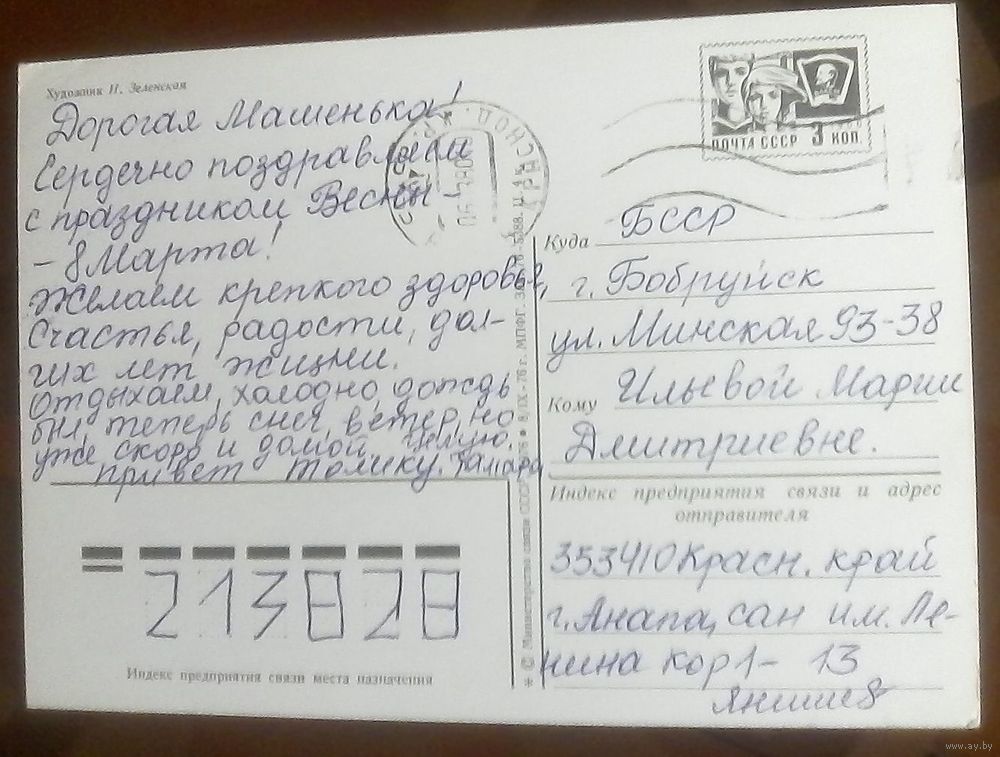 Художник И. Зеленская
Дорогая Машенька!
Сердечно поздравляем
с праздником Весны
- 8 Марта!
Желаем крепкого здоровья,
Счастья, радости, дол-
гих лет жизни.
Отдыхаем, холодно, дождь
был, теперь снег, ветер, но
уже скоро и домой. Целую.
Привет Толику. Тамара
ПОЧТА СССР 3 КОП.
Куда БССР
г. Бобруйск
ул. Минская 93-38
Кому Ильевой Марии
Дмитриевне.
Индекс предприятия связи и адрес
отправителя
353410 Красн. край
г. Анапа, сан им. Ле-
нина кор 1- 13
213828
Индекс предприятия связи места назначения
* © Министерство связи СССР 8/IX-76 г. МПФГ.
www.ay.by